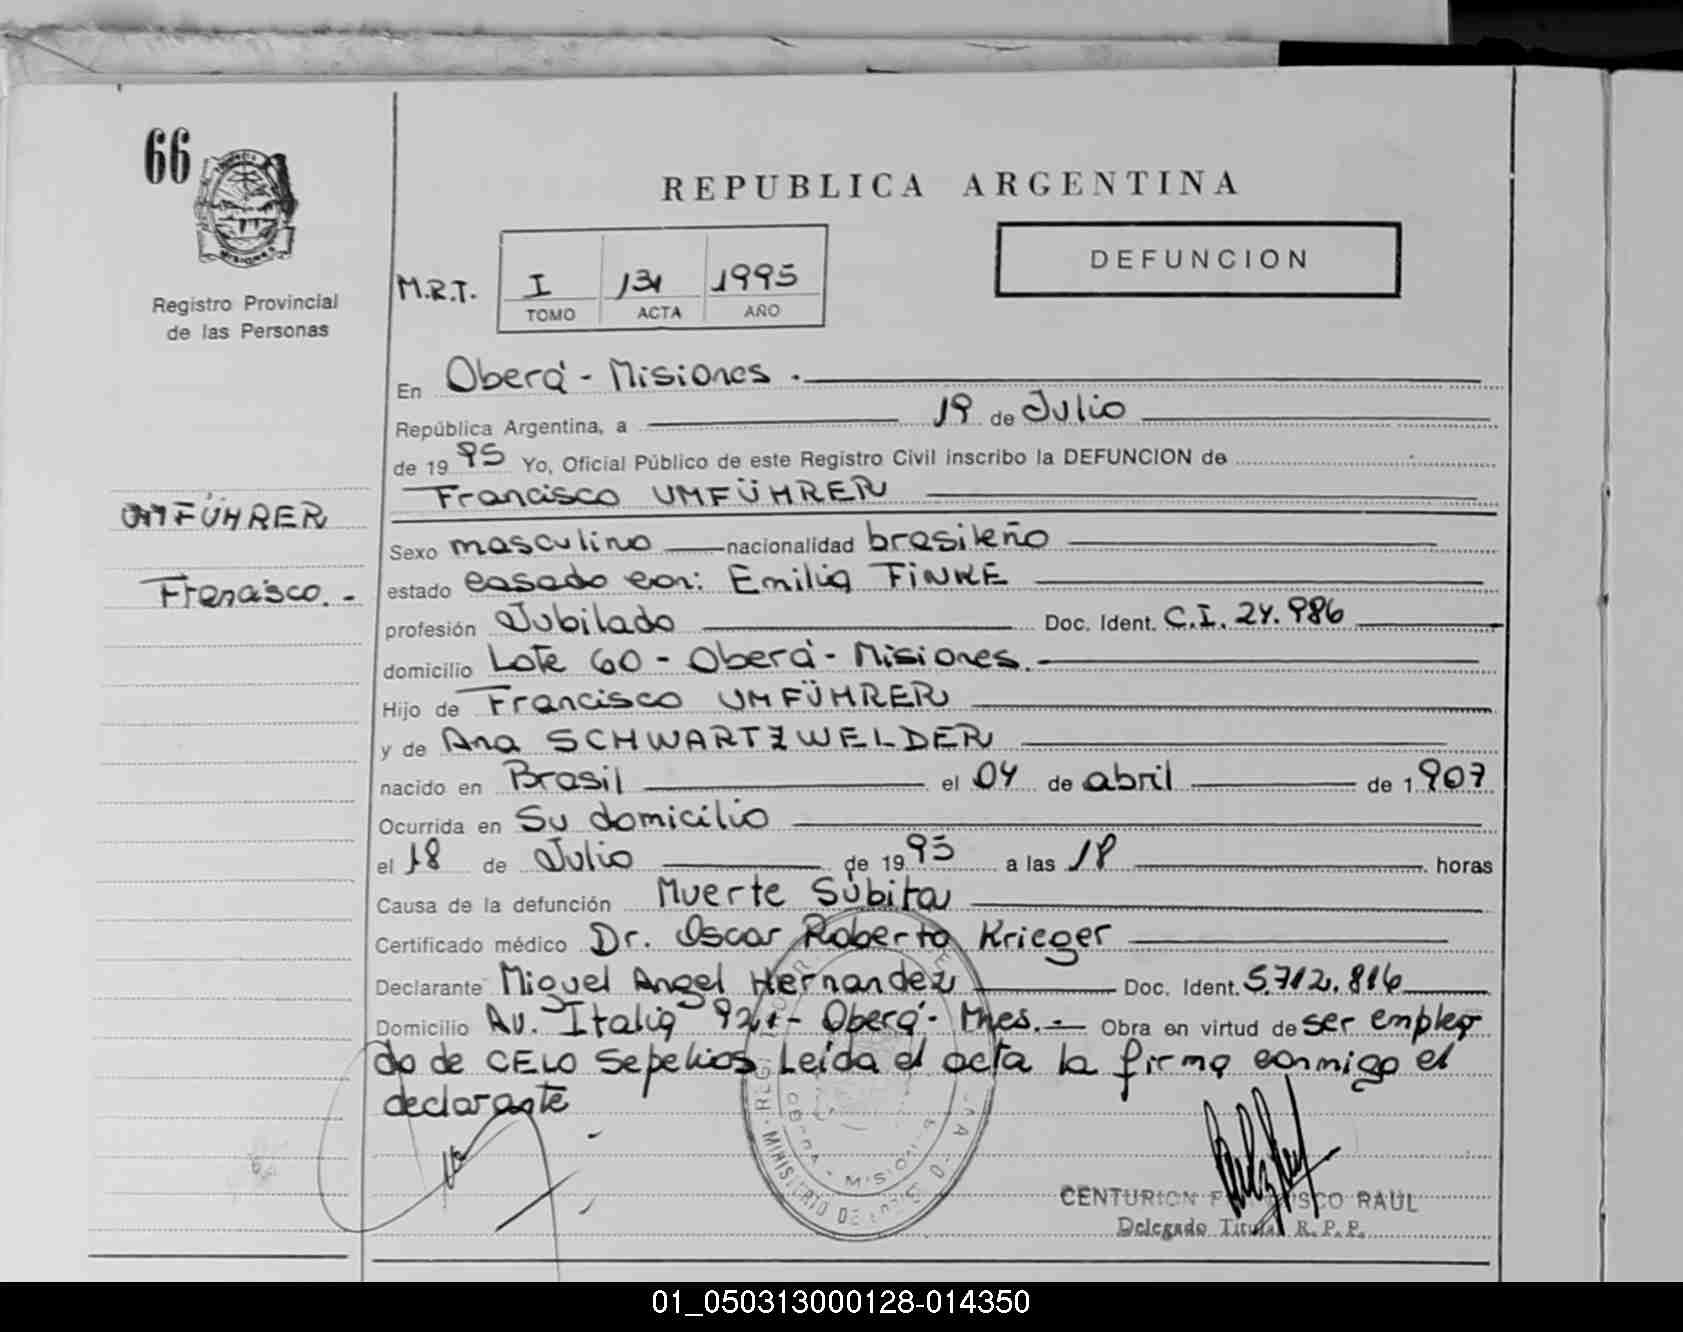 66
REPUBLICA ARGENTINA
DEFUNCION
Registro Provincial
de las Personas
M.R.T. I 131 1995
TOMO ACTA AÑO
En Oberá - Misiones.
República Argentina, a 19 de Julio
de 1995 Yo, Oficial Público de este Registro Civil inscribo la DEFUNCION de
Francisco UMFÜHRER
UMFÜHRER
Francisco.-
Sexo masculino nacionalidad brasileño
estado casado con: Emilia FINKE
profesión Jubilado Doc. Ident. C.I. 24.986
domicilio Lote 60 - Oberá - Misiones.
Hijo de Francisco UMFÜHRER
y de Ana SCHWARTZWELDER
nacido en Brasil el 04 de abril de 1907
Ocurrida en Su domicilio
el 18 de Julio de 1995 a las 18 horas
Causa de la defunción Muerte Súbita
Certificado médico Dr. Oscar Roberto Krieger
Declarante Miguel Angel Hernandez Doc. Ident. 5.712.816
Domicilio Av. Italia 921 - Oberá - Mnes.- Obra en virtud de ser emplea
do de CELO Sepelios Leída el acta la firma conmigo el
declarante
OBERA - MISIONES
CENTURION FRANCISCO RAUL
Delegado Titular R.P.P.
01_050313000128-014350